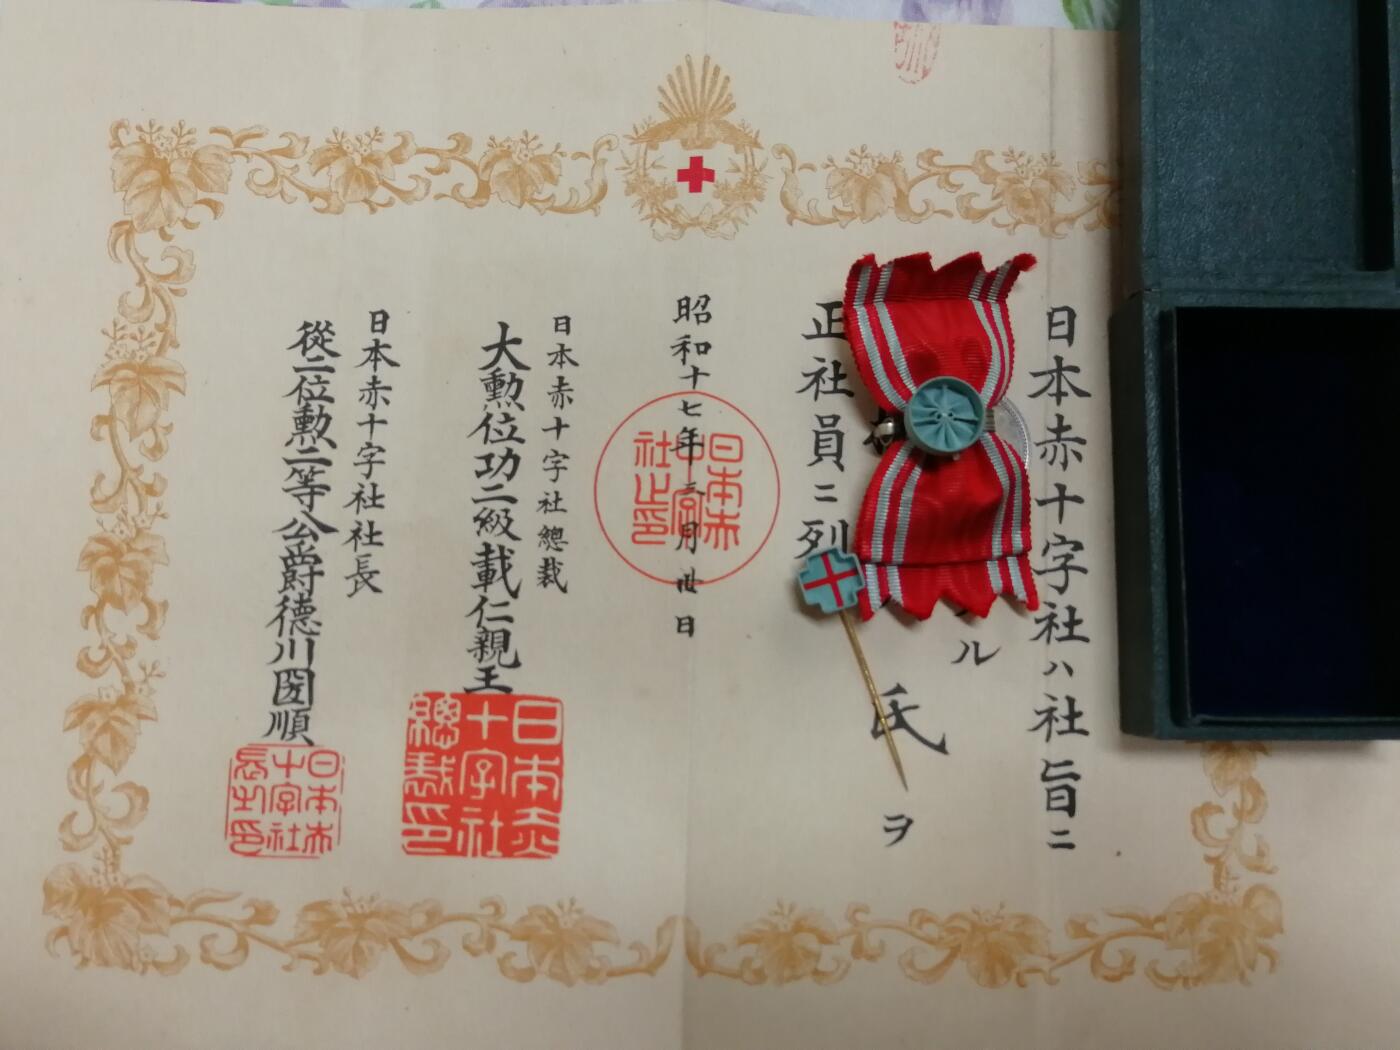 日本赤十字社ハ社旨ニ
ル
氏ヲ
正社員ニ列
昭和十七年三月卅日
日本赤十字社之印
日本赤十字社總裁
大勲位功二級載仁親王
日本赤十字社總裁印
日本赤十字社社長
從二位勲二等公爵德川圀順
日本赤十字社長之印